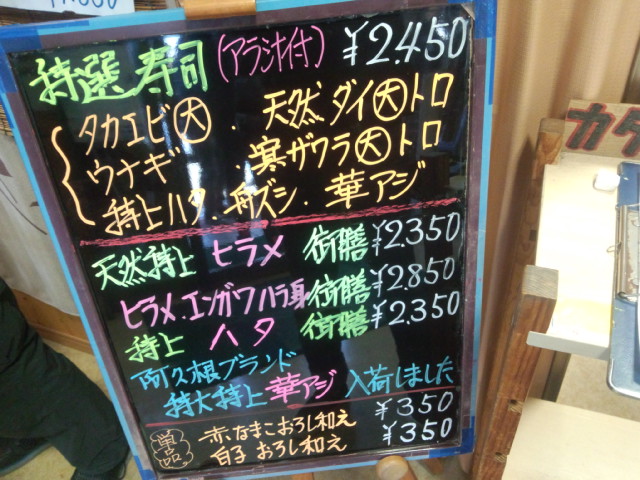 特選寿司(アラ汁付) ¥2.450
タカエビ大・天然ダイ大トロ
ウナギ・寒ザワラ大トロ
特上ハタ・舟ズシ・華アジ
天然特上 ヒラメ 御膳 ¥2.350
ヒラメ・エンガワハラ身御膳 ¥2.850
特上 ハタ 御膳 ¥2.350
阿久根ブランド
特大特上 華アジ 入荷しました
単品 赤なまこおろし和え ¥350
白子おろし和え ¥350
カタ